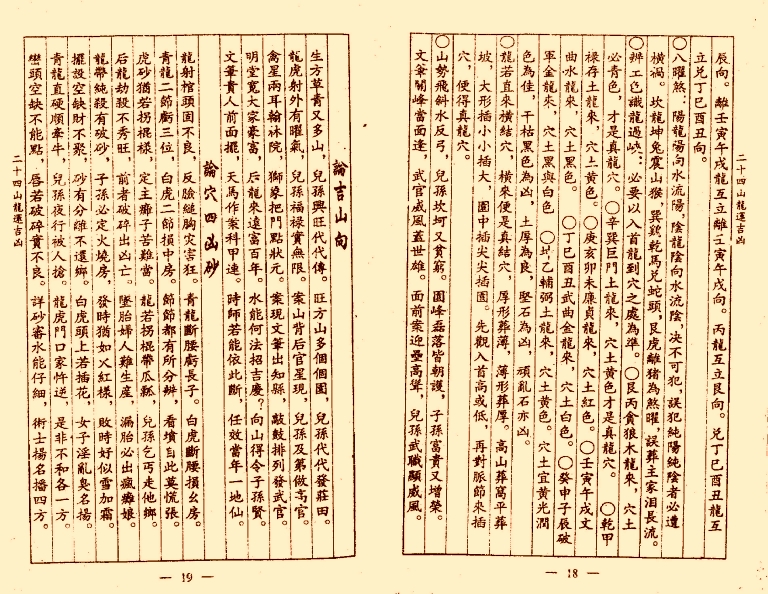 二十四山龍運吉凶
辰向。離壬寅午戌龍互立離壬寅午戌向。丙龍互立艮向。兌丁巳酉丑龍互
立兌丁巳酉丑向。
〇八曜煞：陽龍陽向水流陽，陰龍陰向水流陰，决不可犯，誤犯純陽純陰者必遭
橫禍。坎龍坤兔震山猴，巽鷄乾馬兌蛇頭，艮虎離猪為煞曜，誤葬主家泪長流。
〇辨工色識龍過峽：必要以入首龍到穴之處為準。〇艮丙貪狼木龍來，穴土
必青色，才是真龍穴。〇辛巽巨門土龍來，穴土黄色才是真龍穴。〇乾甲
祿存土龍來，穴土黄色。〇庚亥卯未廉貞龍來，穴土紅色。〇壬寅午戌文
曲水龍來，穴土黑色。〇丁巳酉丑武曲金龍來，穴土白色。〇癸申子辰破
軍金龍來，穴土黑與白色。〇坤乙輔弼土龍來，穴土黄色。穴土宜黄光潤
色為佳，干枯黑色為凶，土厚為良，堅石為凶，頑亂石亦凶。
〇龍若直來橫結穴，橫來便是直結穴，厚形葬薄，薄形葬厚。高山葬窩平葬
坡，大形插小小插大，圓中插尖尖插圓。先觀入首高或低，再對脈節來插
穴，便得真龍穴。
〇山勢飛斜水反弓，兒孫坎坷又貧窮。圓峰磊落皆朝護，子孫富貴又增榮。
文筆關峰當面逢，武官威風蓋世雄。面前案迎壘高聳，兒孫武職顯威風。
— 18 —
論吉山向
生方草青又多山，兒孫興旺代代傳。旺方山多個個圓，兒孫代代發莊田。
龍虎射外有曜氣，兒孫福祿實無限。案山背后官星現，兒孫及第做高官。
禽星兩耳翰林院，獅象把門點狀元。案現文筆出知縣，敲鼓排列發武官。
明堂寬大家豪富，后龍來遠富百年。水能何法招吉慶？向山得令子孫賢。
文筆貴人前面擺，天馬作案科甲連。時師若能依此斷，任效當年一地仙。
論穴四凶砂
龍射棺頭固不良，反臉縋胸灾害狂。青龍斷腰虧長子。白虎斷腰損幺房。
青龍二節虧三位，白虎二節損中房。節節都有所分辨，看墳自此莫慌張。
虎砂猶若拐棍樣，定主癱子苦難當。龍若拐棍帶瓜瓢，兒孫乞丐走他鄉。
后龍劫殺不秀旺，前者破碎出凶亡。墜胎婦人難生産，漏胎必出瘋癱娘。
龍帶純殺有破砂，子孫必定火燒房。發時猶如火紅樣，敗時好似雪加霜。
擺設空缺財不聚，砂有分離不還鄉。白虎頭上若插花，女子淫亂臭名揚。
青龍直硬順牽牛，兒孫夜行被人搶。龍虎門口家忤逆，是非不和各一方。
巒頭空缺不能點，唇若破碎實不良。詳砂審水能仔細，術士揚名播四方。
二十四山龍運吉凶
— 19 —